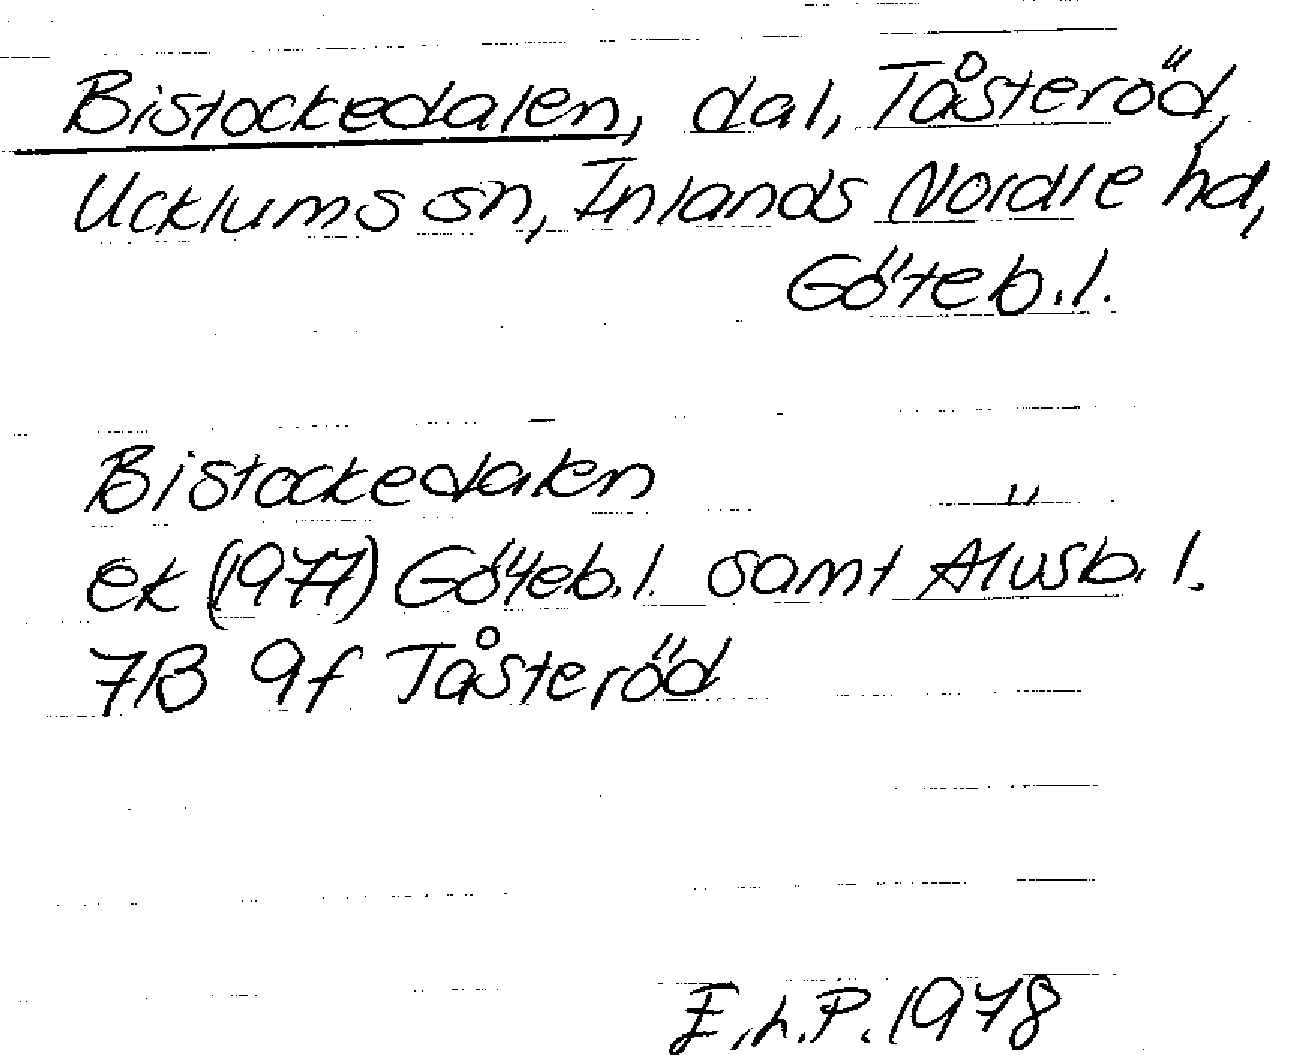 Bistockedalen, dal, Tåsteröd,
Ucklums sn, Inlands Nordre hd,
Göteb.l.
Bistockedalen "
ek (1977) Göteb.l. samt Älvsb.l.
7B 9f Tåsteröd
E.h.P. 1978